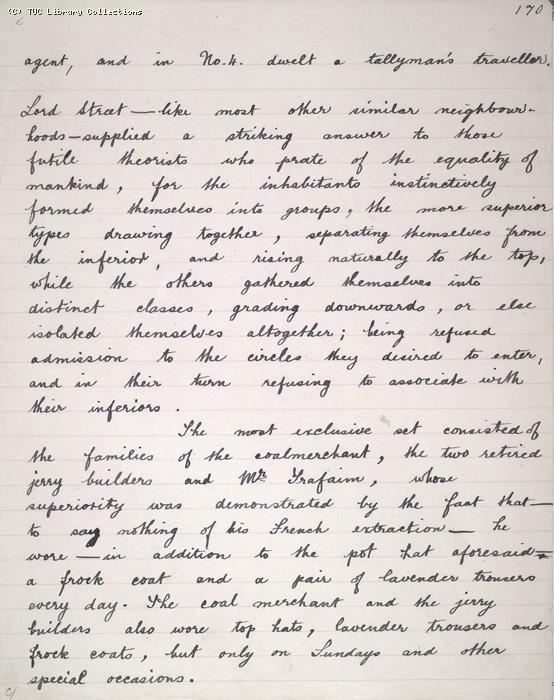 (C) TUC Library Collections
170
agent, and in No. 4. dwelt a tallyman's traveller.
Lord Street — like most other similar neighbour-
hoods — supplied a striking answer to those
futile theorists who prate of the equality of
mankind, for the inhabitants instinctively
formed themselves into groups, the more superior
types drawing together, separating themselves from
the inferior, and rising naturally to the top,
while the others gathered themselves into
distinct classes, grading downwards, or else
isolated themselves altogether; being refused
admission to the circles they desired to enter,
and in their turn refusing to associate with
their inferiors.
The most exclusive set consisted of
the families of the coalmerchant, the two retired
jerry builders and Mr Trafaim, whose
superiority was demonstrated by the fact that —
to say nothing of his French extraction — he
wore — in addition to the pot hat aforesaid —
a frock coat and a pair of lavender trousers
every day. The coal merchant and the jerry
builders also wore top hats, lavender trousers and
frock coats, but only on Sundays and other
special occasions.